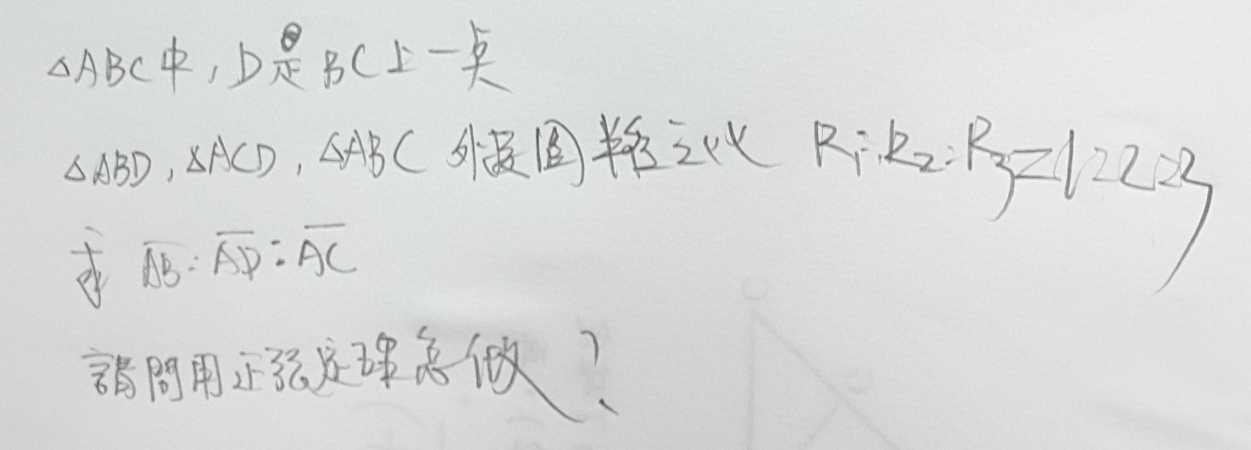 △ABC中,D是BC上一点
△ABD,△ACD,△ABC 外接圓半徑之比 R₁:R₂:R₃=1:2:3
求 AB:AD:AC
請問用正弦定理怎做?